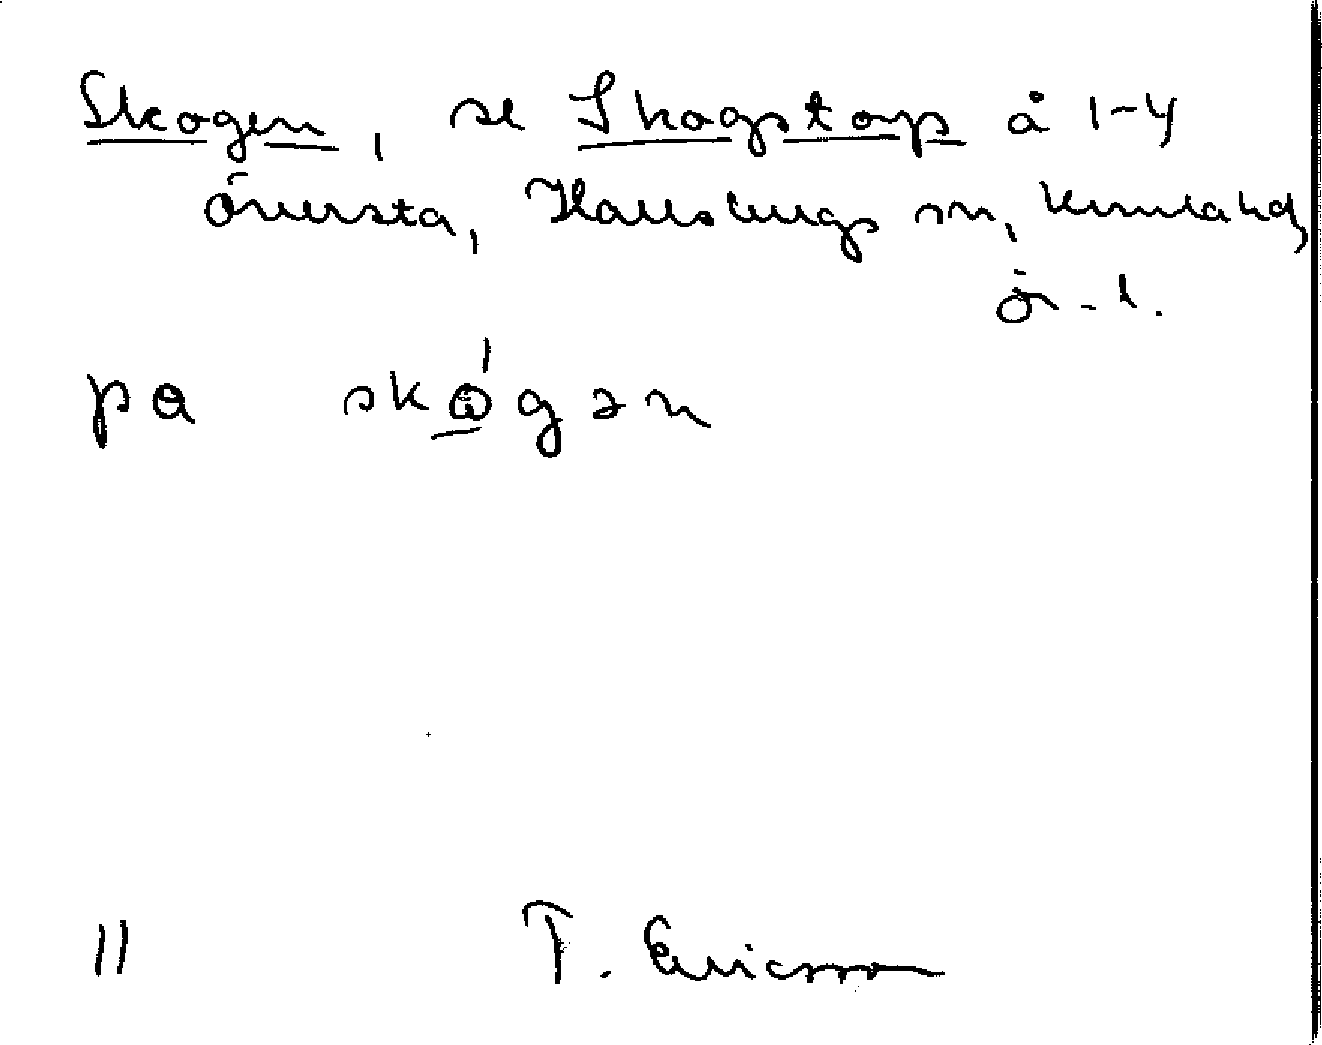 Skogen, se Skogstorp å 1-4
Översta, Hallsbergs sn, Kumla hd,
Ör. l.
pa skógən
11 T. Ericsson